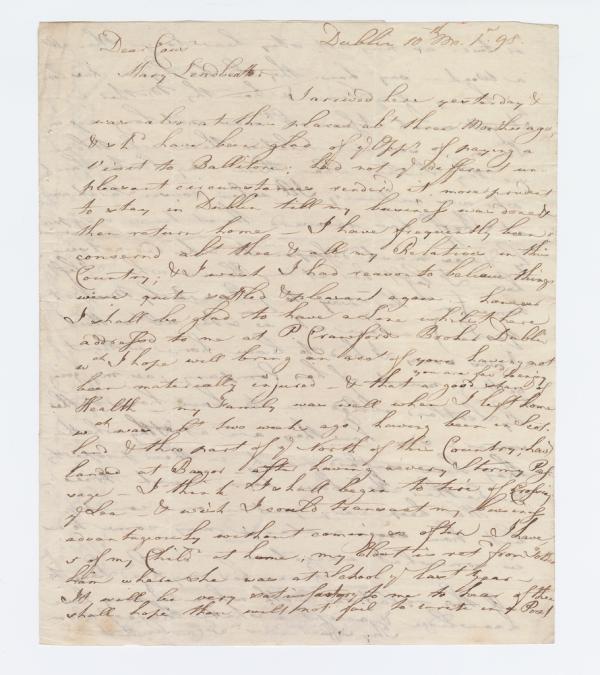 Dublin 10th Mo. 1st 98.
Dear Cous
Mary Leadbeater
I arrived here yesterday &
was also at this place abt three Months ago,
& shd have been glad of ye Oppy of paying a
Visit to Ballitore; had not ye different un
pleasant circumstances rendered it more prudent
to stay in Dublin till my business was done &
then return home – I have frequently been
concernd abt thee & all my Relations in this
Country; & I wish I had reason to believe things
were quite settled & pleasant again – however
I shall be glad to have a Line whilst here
addressed to me at P. Crawfords Broker Dublin
wch I hope will bring an acct of your having not
been materially injured – & that you are favd being
a good share of
Health my Family was well when I left home
wch was abt two weeks ago, having been in Scot
land & thro part of ye North of this Country, havg
landed at Bangor after having a very Stormy Pas
sage – I think I shall begin to tire of Crossing
ye Sea – & wish I could transact my business
advantageously without coming so often I have
5 of my Child at home, my Eldest is not from
him where she was at School ye last Year –
It will be very satisfactory to me to hear of thee
shall hope thou will not fail to write in ye Post